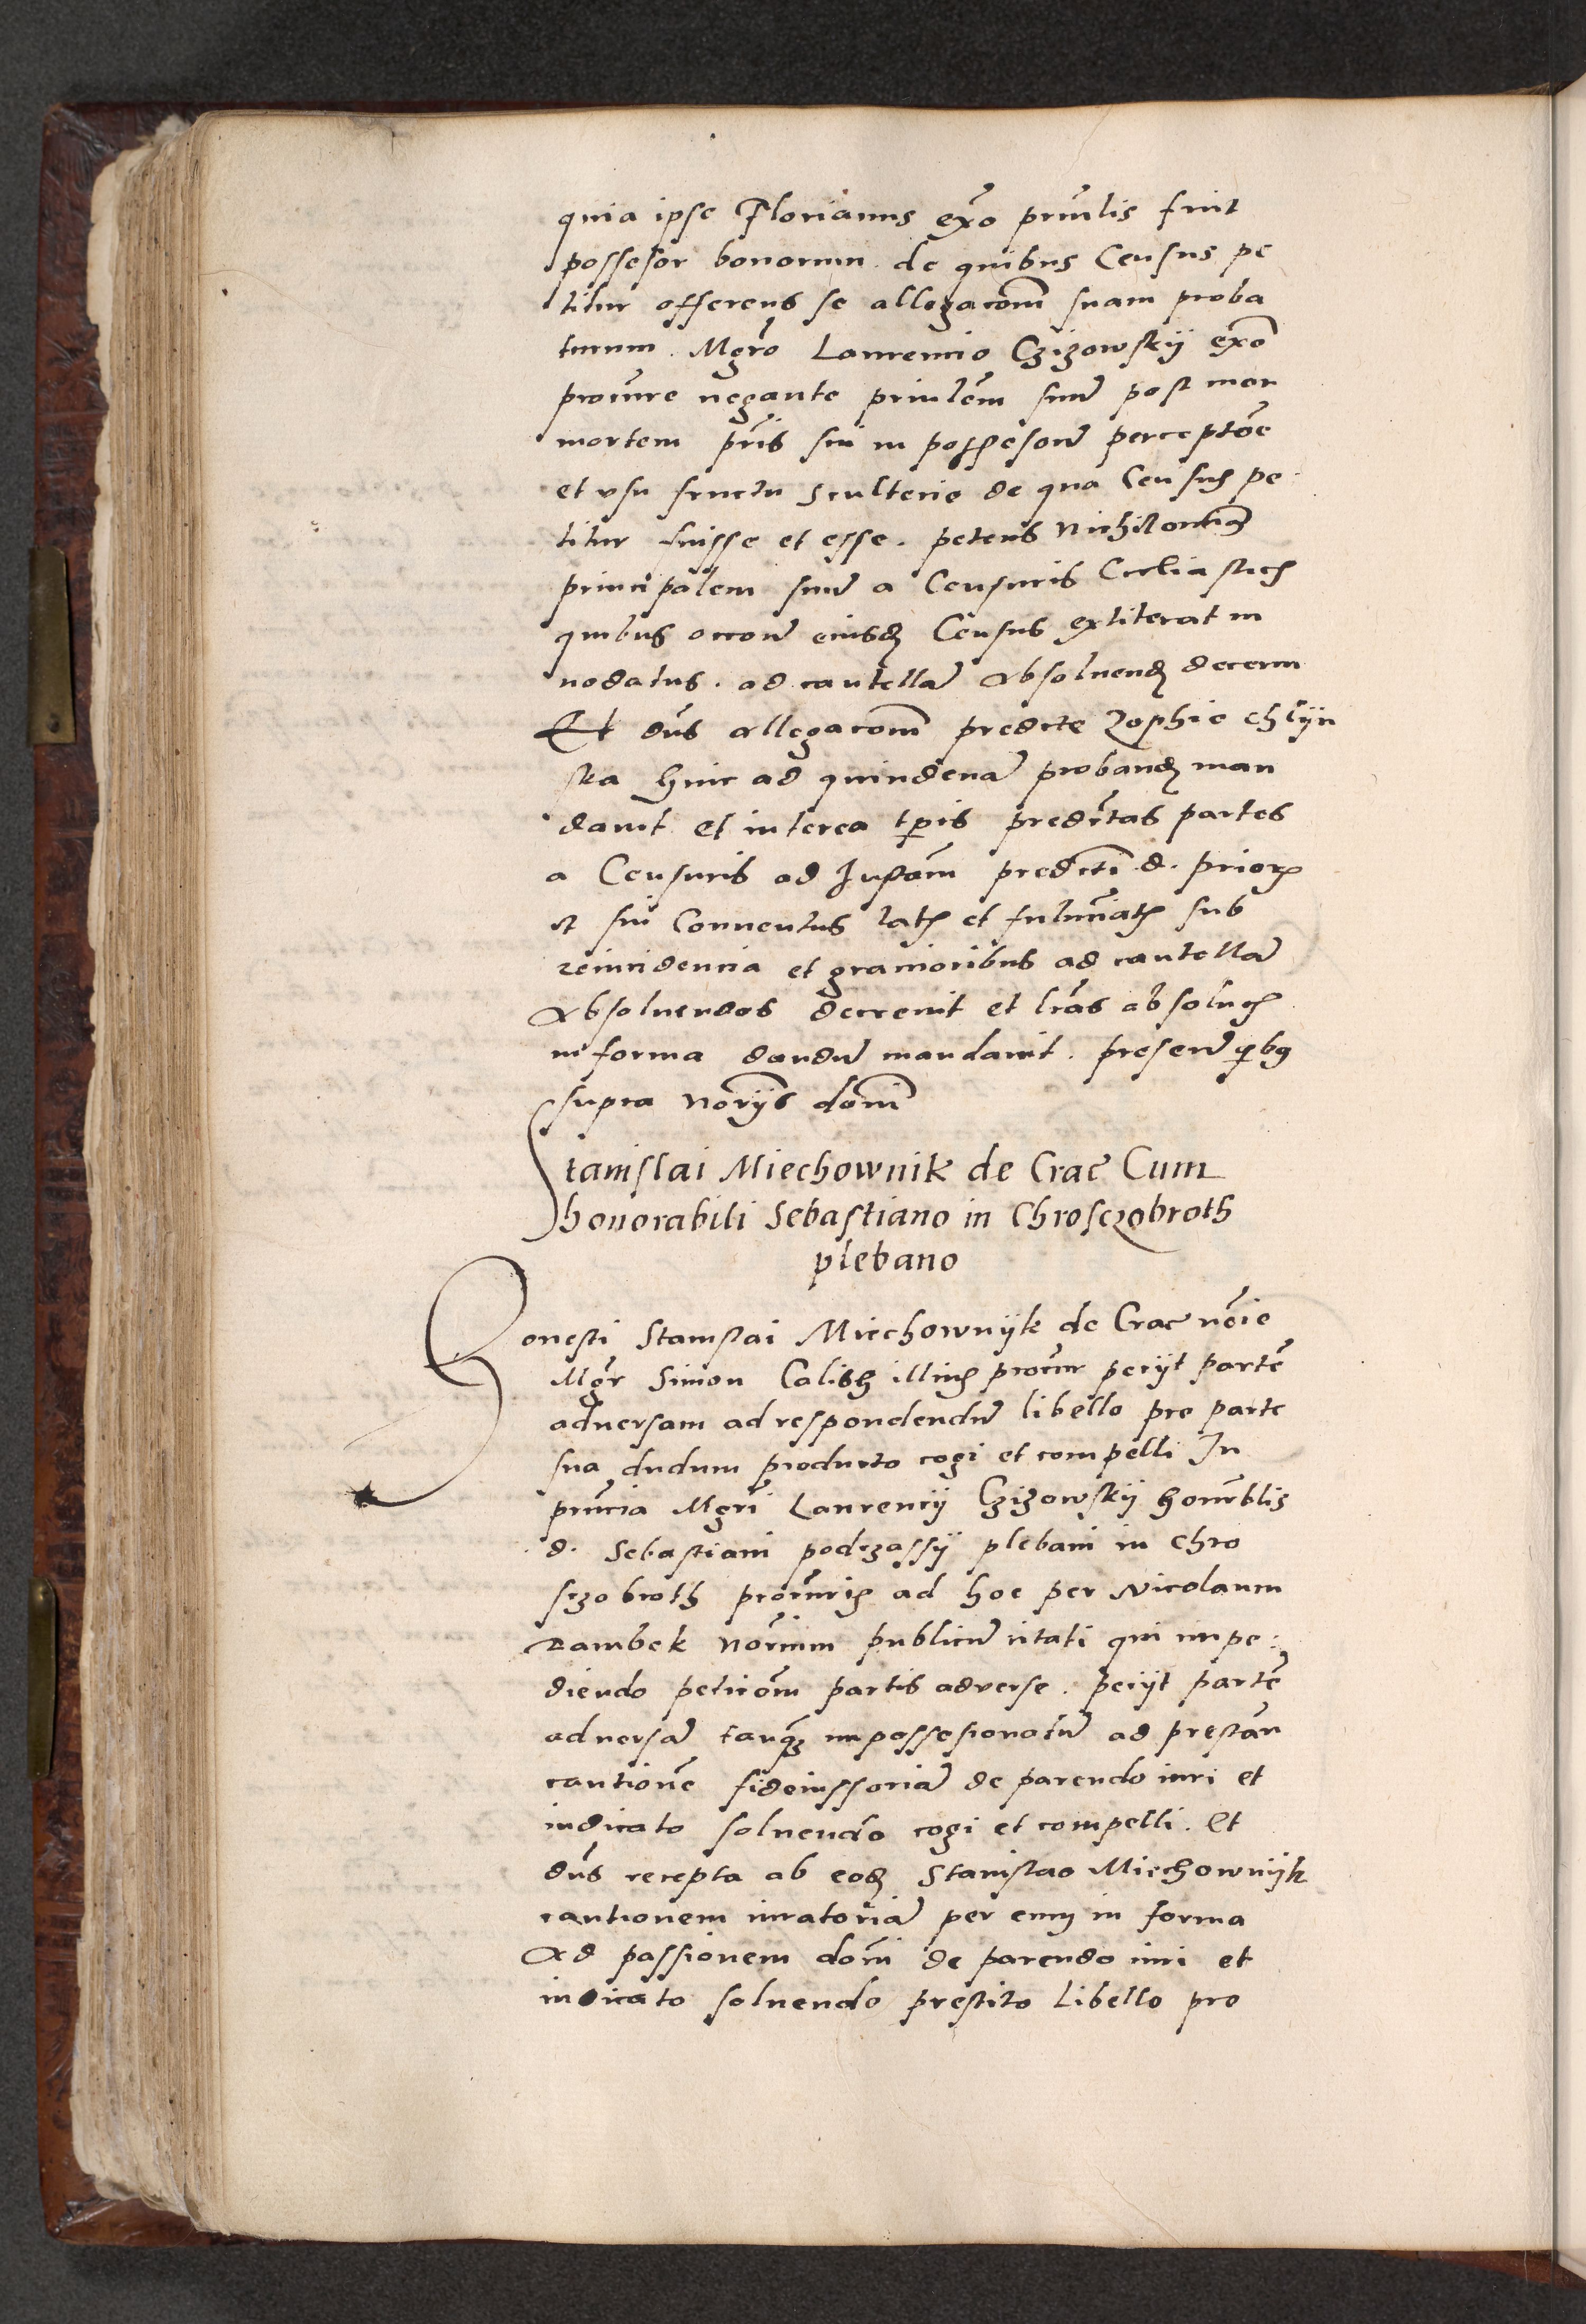 quia ipse Florianus exo prnlis fuit
possesor bonorum de quibus Census pe
titur offerens se allegacom suam proba
turum. Mgro Laurencio Czizowskij exo
procure negante prinlem suu post mor
mortem pris sui in possesione perceptoe
et vsu fructu Sculterie de qua Census pe
titur fuisse et esse. petens Nichilominus
principalem suu a Censuris Ecclia sticis
quibus occone eiusdem Census extiterat in
nodatus. ad cautella absoluendum decerni
Et dns allegacom predicte Zophie Chlijn
ska hinc ad quindena probandum man
dauit et interea tpis predictas partes
a Censuris ad Instam predicti d. prioris
et sui Conuentus latis et fulminatis sub
reincidencia et gracioribus ad cautella
absoluendos decreuit et lras absolucis
in forma dandum mandauit. presentibus quibus
supra Norijs domi
Stanislai Miechownik de Crac Cum
honorabili Sebastiano in Chrosczobroth
plebano
Honesti Stanislai Miechownijk de Crac noie
Mgr Simon Calish illius procur pecijt parte
aduersam ad respondendu libello pro parte
sua dudum producto cogi et compelli In
pncia Mgri Laurencij Czizowskij honrblis
d. Sebastiani podczassij plebani in Chro
sczobroth procuris ad hoc per Nicolaum
Rambek Norium publicu citati qui impe:
diendo peticom partis aduerse. pecijt parte
aduersa tanquam impossesionatu ad prestan
cautione fideiussoria de parendo iuri et
iudicato soluendo cogi et compelli. Et
dns recepta ab eodem Stanislao Miechownijk
cautionem iuratoria per eum in forma
Ad passionem domi de parendo iuri et
iudicato soluendo prestito libello pro